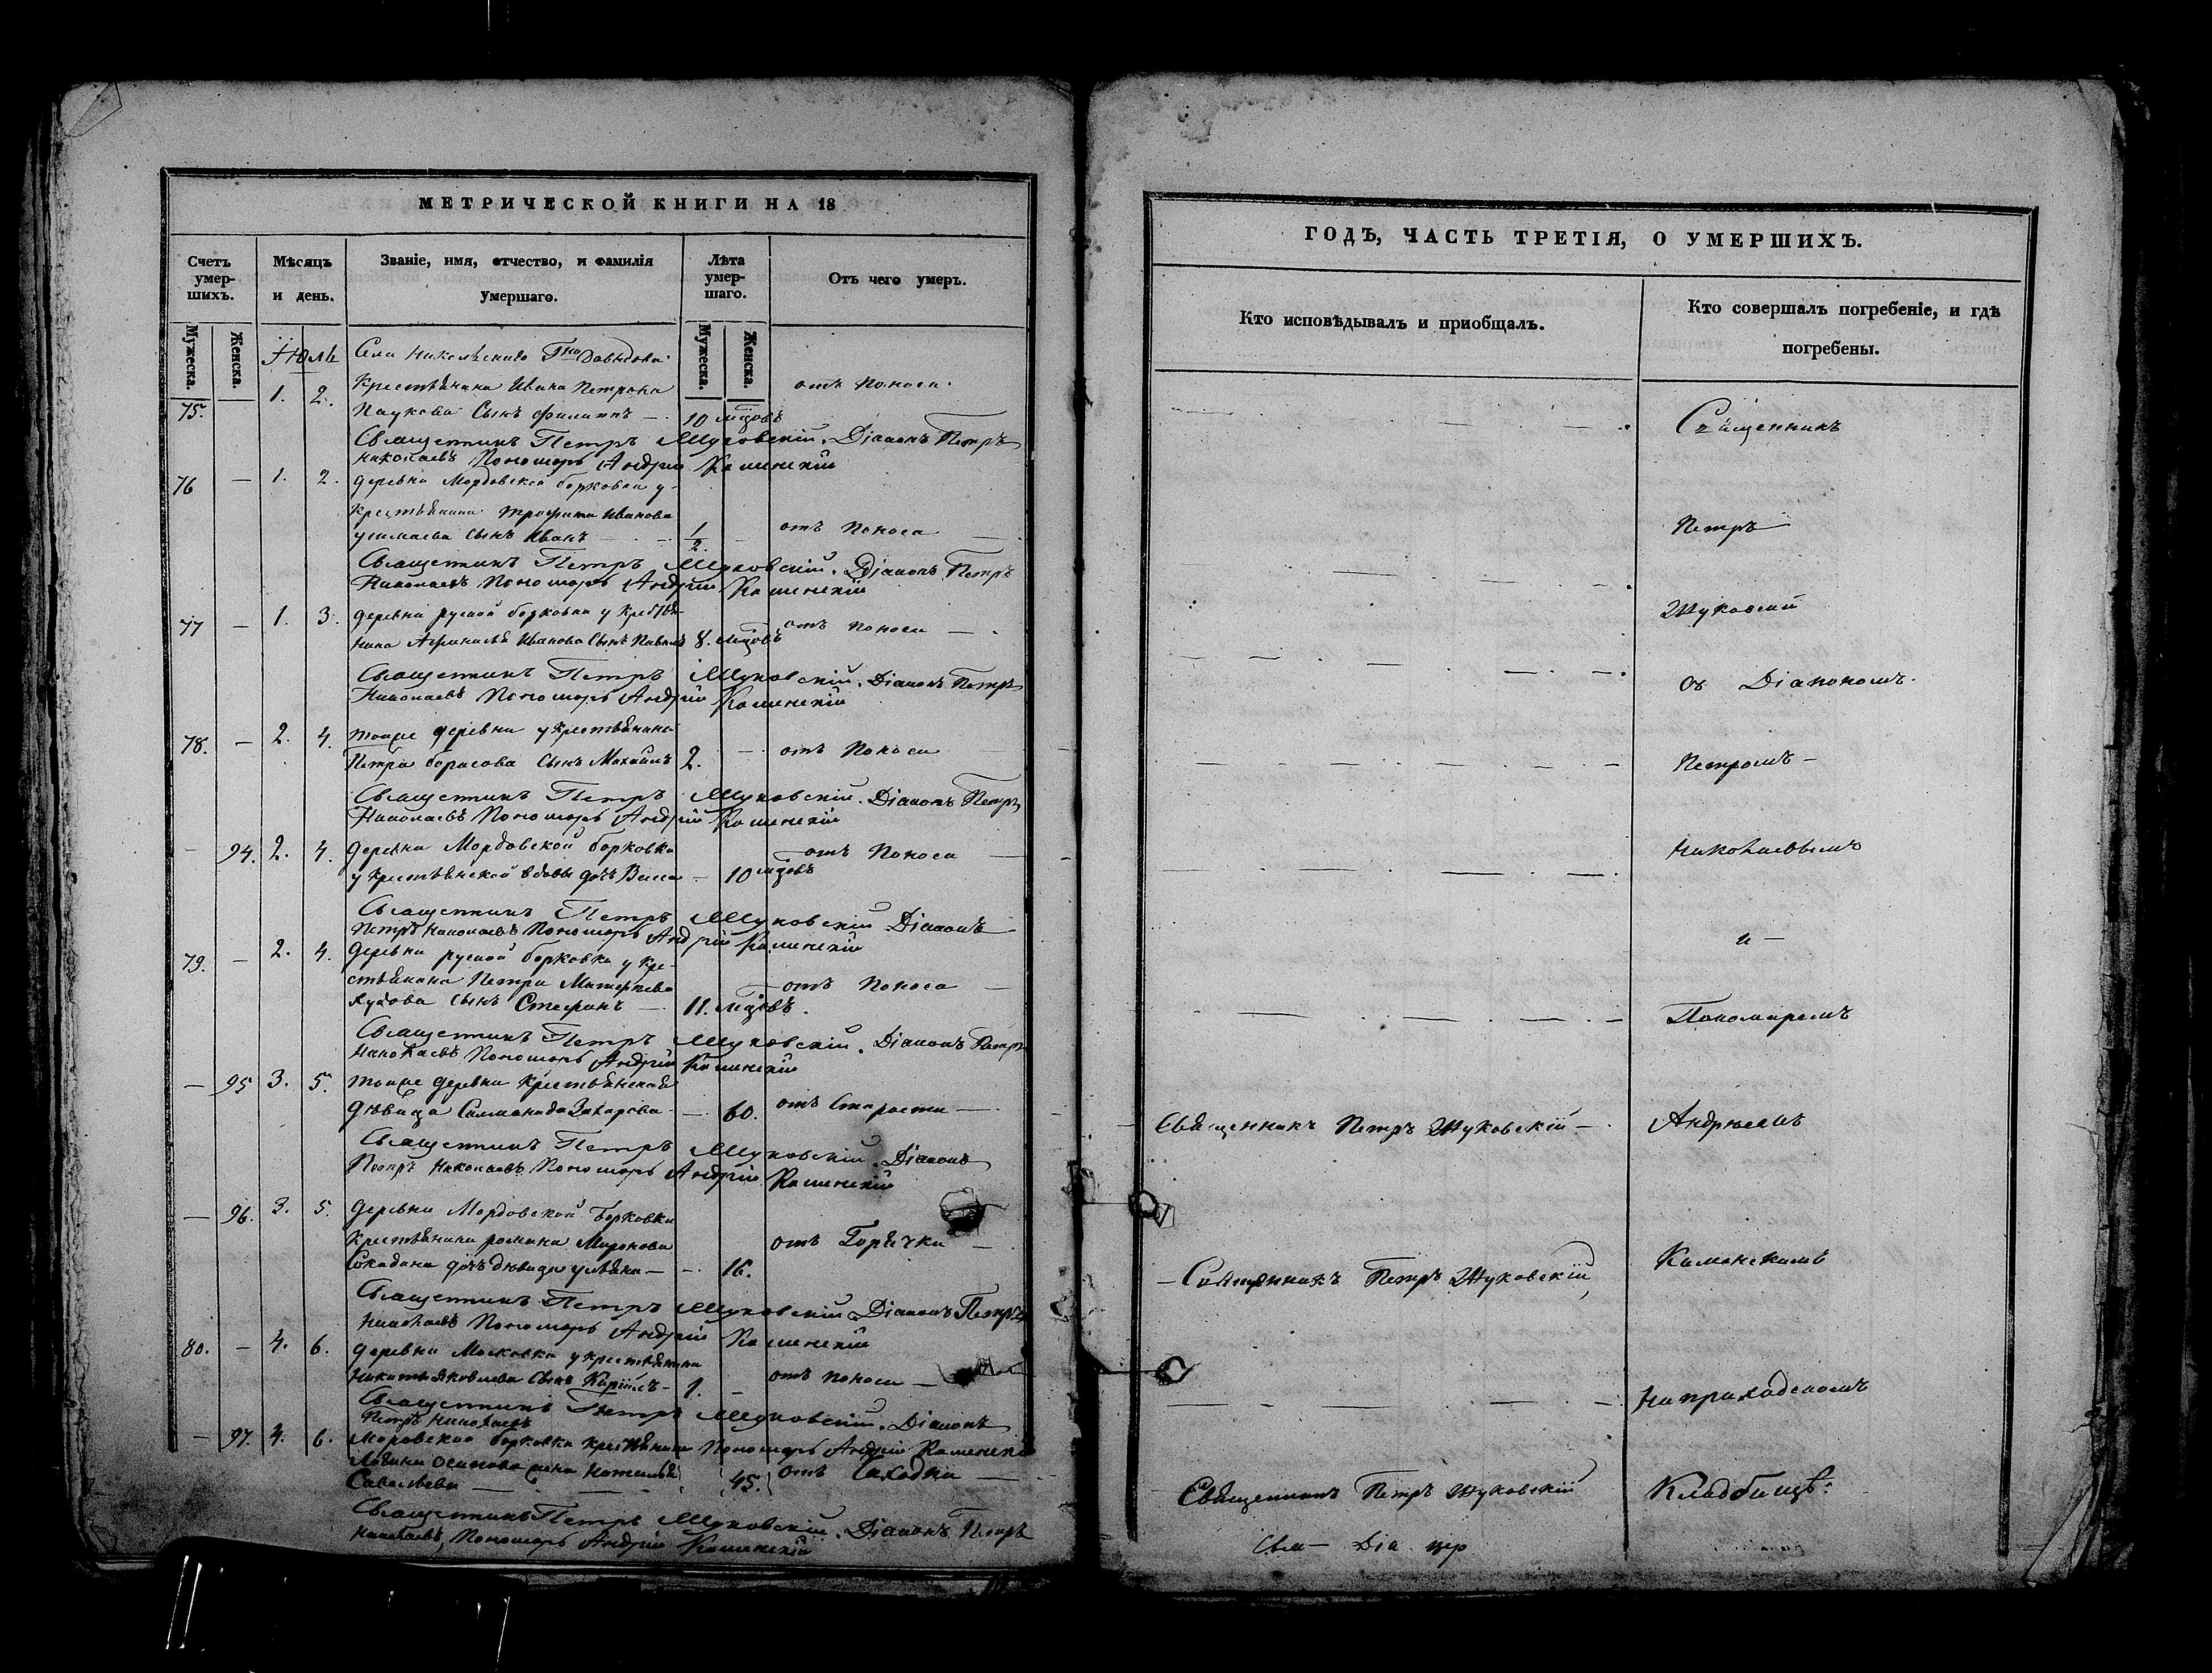 МЕТРИЧЕСКОЙ КНИГИ НА 18
Счетъ умер-шихъ.
Мѣсяцъ и день.
Званіе, имя, отчество, и фамилія умершаго.
Лѣта умер-шаго.
Отъ чего умеръ.
Мужеска.
Женска.
Мужеска.
Женска.
Іюль
Села Никольскаго Гна Давыдова
75. 1. 2. крестьянина Ивана Петрова отъ поноса
Паукова сынъ Филиппъ — 10 мцовъ
Священникъ Петръ Жуковскій. Діаконъ Петръ
Николаевъ Пономарь Андрей Каменскій
76 — 1. 2. деревни Мордовской борковки у
крестьянина Трофима Иванова
сынъ Иванъ — 1/2. — отъ поноса —
Священникъ Петръ Жуковскій. Діаконъ Петръ
Николаевъ Пономарь Андрей Каменскій
77 — 1. 3. деревни руской борковки у крестья-
нина Афанасья Иванова сынъ Павелъ 8. мцовъ отъ поноса —
Священникъ Петръ Жуковскій. Діаконъ Петръ
Николаевъ Пономарь Андрей Каменскій
78. — 2. 4. тояже деревни у крестьянина
Петра борисова сынъ Михаилъ 2. — отъ поноса
Священникъ Петръ Жуковскій. Діаконъ Петръ
Николаевъ Пономарь Андрей Каменскій
— 94. 2. 4. деревни Мордовской борковки отъ поноса —
у крестьянской вдовы дочь Васса — 10 мцовъ
Священникъ Петръ Жуковскій Діаконъ
Петръ Николаевъ Пономарь Андрей Каменскій
79. — 2. 4. деревни руской борковки у кре-
стьянина Петра Матвѣева — отъ поноса —
сынъ Стефанъ — 11. мцовъ.
Священникъ Петръ Жуковскій. Діаконъ Петръ
Николаевъ Пономарь Андрей Каменскій
— 95 3. 5. тояже деревни крестьянская
дѣвица Саламанида Захарова — — 60. отъ старости —
Священникъ Петръ Жуковскій. Діаконъ
Петръ Николаевъ Пономарь Андрей Каменскій
— 96. 3. 5. деревни Мордовской борковки
крестьянина романа Миронова отъ горячки —
дочь дѣвица — — 16.
Священникъ Петръ Жуковскій Діаконъ Петръ
Николаевъ Пономарь Андрей Каменскій
80. — 4. 6. деревни Московки у крестьянина
Никиты Яковлева сынъ Кирилъ — 1. — отъ поноса —
Священникъ Петръ Жуковскій. Діаконъ
Петръ Николаевъ
— 97. 4. 6. Моровской борковки крестьянина Пономарь Андрей Каменскій
Осипова жена Наталья 45. отъ
Савельева —
Священникъ Петръ Жуковскій. Діаконъ Петръ
Николаевъ, Пономарь Андрей Каменскій
ГОДЪ, ЧАСТЬ ТРЕТІЯ, О УМЕРШИХЪ.
Кто исповѣдывалъ и пріобщалъ.
Кто совершалъ погребеніе, и гдѣ погребены.
Священникъ
Петръ
Жуковскій
съ Діакономъ
Петромъ —
Николаевымъ
и —
Пономаремъ
Священникъ Петръ Жуковскій — Андреемъ
— Священникъ Петръ Жуковскій, Каменскимъ
На приходскомъ
Священникъ Петръ Жуковскій Кладбищѣ.
Свя — Діа